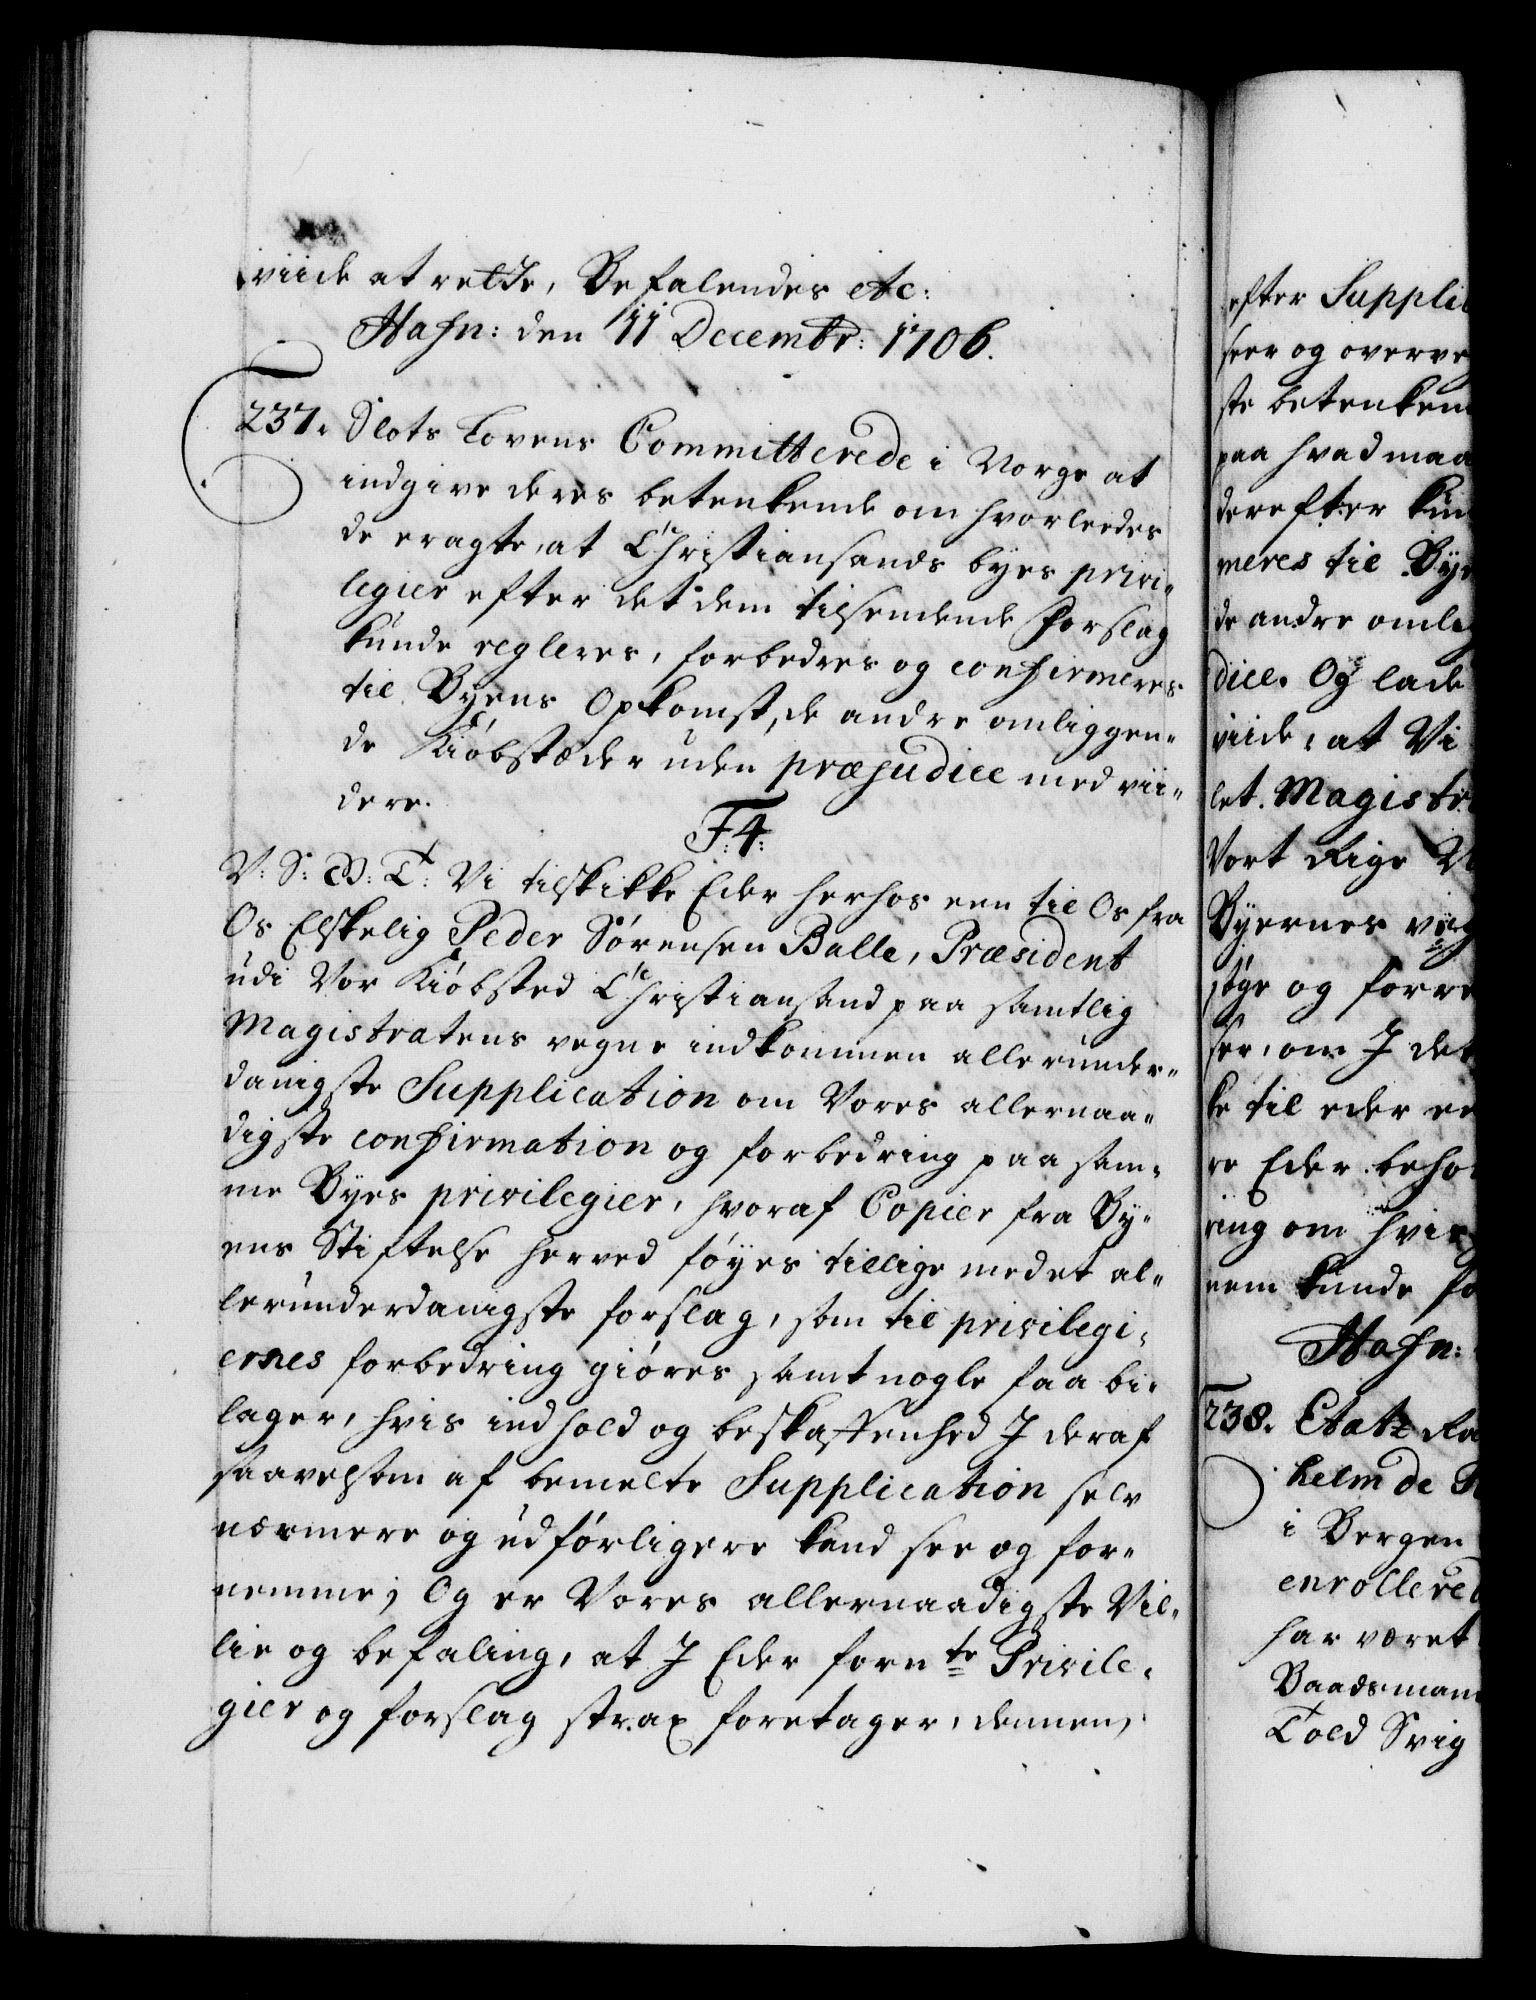 viide at rette, Befalendes etc:
Hafn: den 11 Decembr: 1706.
237. Slots Lovens Committerede i Norge at
indgive deres betenkende om hvorleedes
de eragte, at Christiansands byes privi-
legier efter det dem tilsendende Forslag
kunde regleres, forbedres og confirmeres
til Byens Opkomst, de andre omliggen-
de Kiøbstæder uden præjudice med vii-
dere.
F. 4.
V: S: G: T: Vi tilskikke Eder herhos een til Os fra
Os Elskelig Peder Sørensen Balle, Præsident
udi Vor Kiøbsted Christiansand paa samtlig
Magistratens vegne indkommen allerunder-
danigste Supplication om Vores allernaa-
digste confirmation og forbedring paa sam-
me Byes privilegier, hvoraf Copier fra By-
ens Stiftelse herved føyes tillige med et al-
lerunderdanigste forslag, som til privilegi-
ernes forbedring giøres samt nogle faa bi-
lager, hvis indhold og beskaffenhed I deraf
saavelsom af bemelte Supplication selv
nærmere og udførligere kand see og for-
nemme; Og er Vores allernaadigste Vil-
lie og befaling, at I Eder forn te Privile-
gier og forslag strax foretager, dennem
efter Suppli
seer og overve
ste betenken
paa hvad maa
derefter kun
meres til Bye
de andre omli
dice. Og lade
viide, at Vi
let. Magistr
Vort Rige N
Byernes
søge og forre
ser, om I det
ke til eder
re Eder beho
ring om hvis
nem kunde fo
Hafn:
238. Etatz Ra
helm de
i Bergen
enrollered
har været
Baadsman
Told